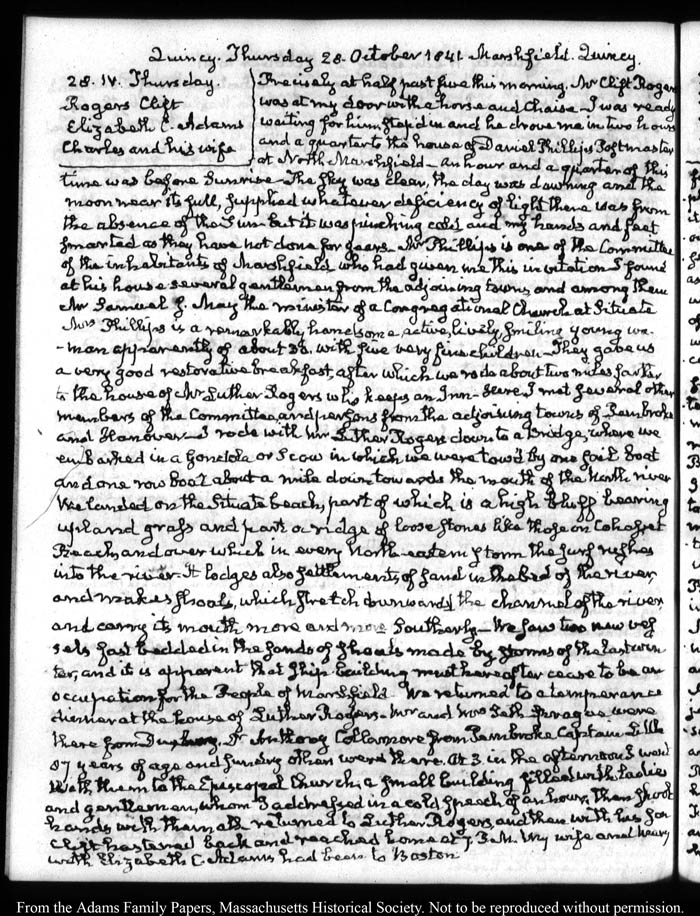 Quincy. Thursday 28. October 1841. Marshfield. Quincy.
28. IV. Thursday.
Rogers Clift
Elizabeth C. Adams
Charles and his wife
Precisely at half past five this morning. Mr Clift Rogers
was at my door with a horse and Chaise. I was ready
waiting for him, step'd in and he drove me in two hours
and a quarter to the house of Daniel Phillips Postmaster
at North Marshfield — an hour and a quarter of this
time was before Sunrise — The Sky was clear, the day was dawning and the
moon near its full, supplied whatever deficiency of light there was from
the absence of the Sun — but it was pinching cold and my hands and feet
smarted as they have not done for years. Mr Phillips is one of the Committee
of the inhabitants of Marshfield who had given me this invitation. I found
at his house several gentlemen from the adjoining towns, and among them
Mr Samuel J. May the minister of a Congregational Church at Situate
Mrs Phillips is a remarkably handsome, active, lively, smiling young wo-
-man apparently of about 30. with five very fine children — They gave us
a very good restorative breakfast, after which we rode about two miles farther
to the house of Mr Luther Rogers who keeps an Inn — Here I met several other
members of the Committee, and persons from the adjoining towns of Pembroke
and Hanover — I rode with Mr Luther Rogers down to a Bridge, where we
embarked in a Gondola or Scow in which we were tow'd by one sail boat
and one row boat about a mile down towards the mouth of the North river
We landed on the Situate beach, part of which is a high bluff bearing
upland grass and part a ridge of loose stones like those on Cohasset
Beach, and over which in every North-eastern storm the surf rushes
into the river. It lodges also settlements of sand in the bed of the river,
and makes shoals, which stretch downwards the channel of the river
and carry its mouth more and more Southerly — We saw two new ves
sels fast bedded in the sands of shoals made by storms of the last win-
ter, and it is apparent that ship building must hereafter cease to be an
occupation for the People of Marshfield. We returned to a temperance
dinner at the house of Luther Rogers. Mr and Mrs Seth Sprague were
there from Duxbury. Dr Anthony Collamore from Pembroke Captain Little
87 years of age and sundry others were there. At 3 in the afternoon I went
with them to the Episcopal Church, a small building filled with Ladies
and gentlemen, whom I addressed in a cold speech of an hour, then shook
hands with them all returned to Luther Rogers, and then with his son
Clift hastened back and reached home at 7. P.M. My wife and Mary
with Elizabeth C. Adams had been to Boston
From the Adams Family Papers, Massachusetts Historical Society. Not to be reproduced without permission.